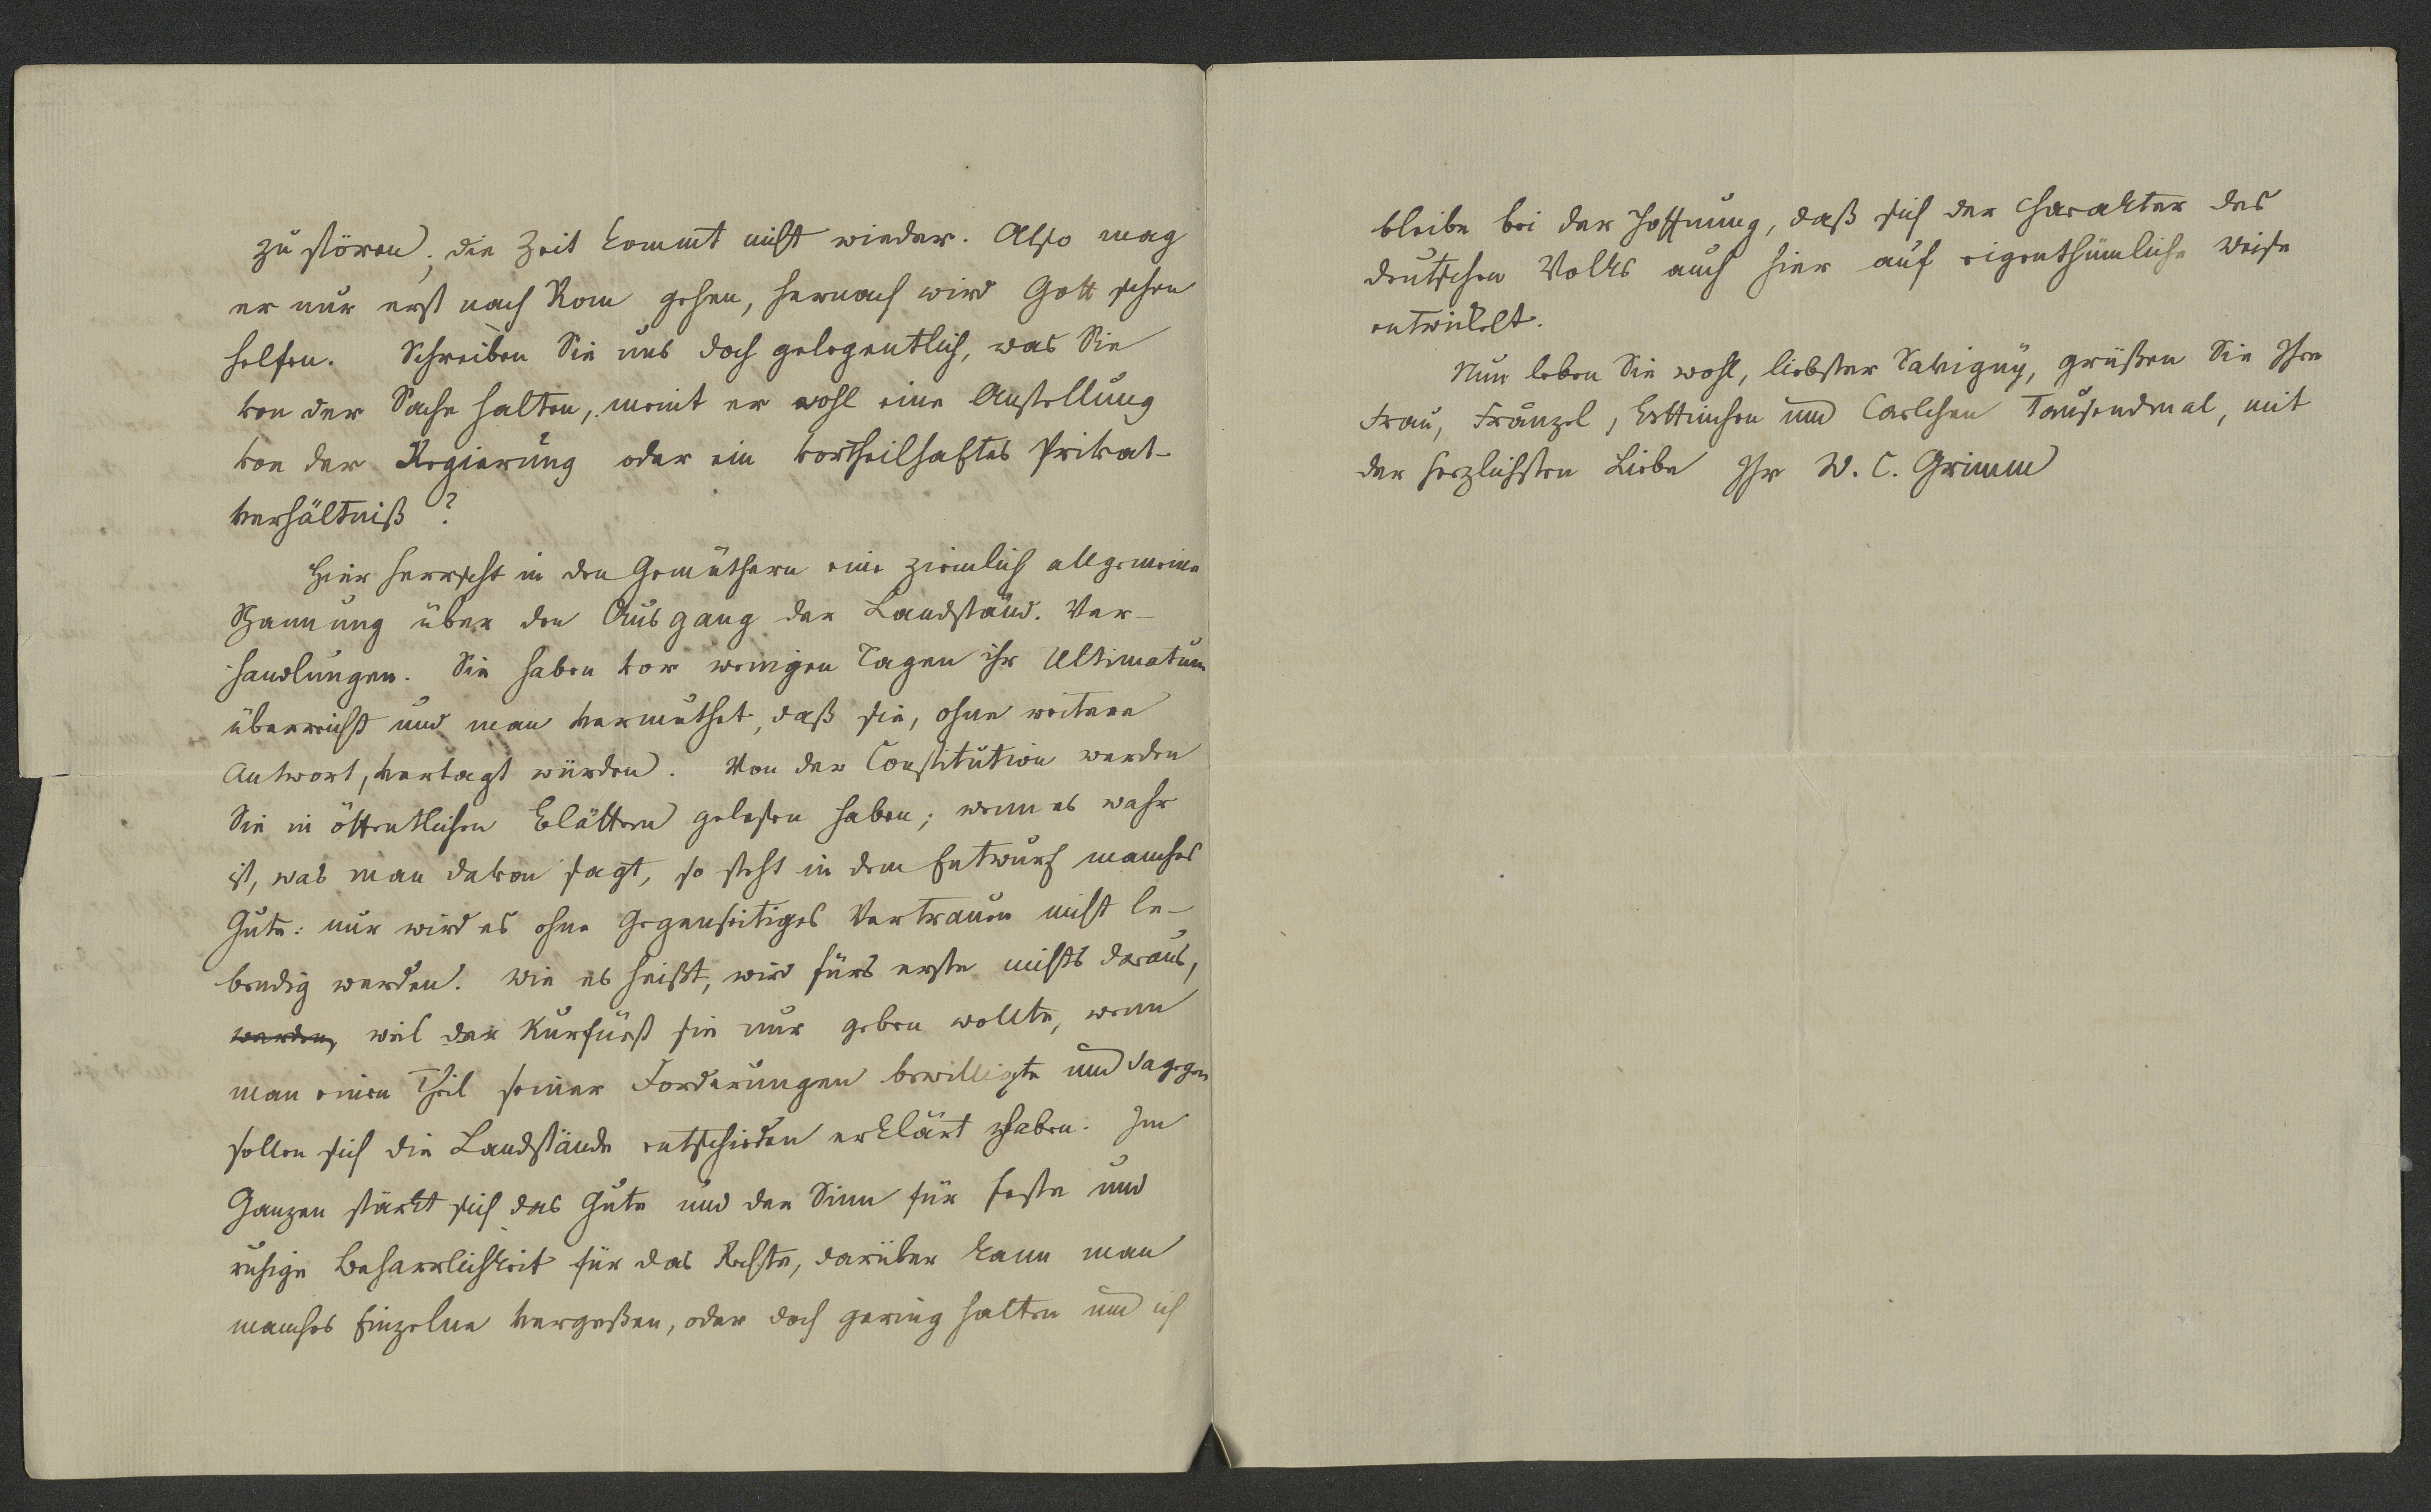 zu stören, die Zeit kommt nicht wieder. Also mag
er nur erst nach Rom gehen, hernach wird Gott schon
helfen. Schreiben Sie uns doch gelegentlich, was Sie
von der Sache halten, meint er wohl eine Anstellung
von der Regierung oder ein vortheilhaftes Privat-
verhältniß?
Hier herrscht in den Gemüthern eine ziemlich allgemeine
Spannung über den Ausgang der Landständ. Ver-
handlungen. Sie haben vor wenigen Tagen ihr Ultimatum
überreicht und man vermuthet, daß sie, ohne weitere
Antwort, vertagt würden. Von der Constitution werden
Sie in öffentlichen Blättern gelesen haben; wenn es wahr
ist, was man davon sagt, so steht in dem Entwurf manches
Gute: nur wird es ohne gegenseitiges Vertrauen nicht le-
bendig werden. Wie es heißt, wird fürs erste nichts daraus,
werden, weil der Kurfürst sie nur geben wollte, wenn
man einen Theil seiner Forderungen bewilligte und dagegen
sollen sich die Landstände entschieden erklärt haben. Im
Ganzen stärkt sich das Gute und der Sinn für feste und
ruhige Beharrlichkeit für das Rechte, darüber kann man
manches Einzelne vergeßen, oder doch gering halten und ich
bleibe bei der Hoffnung, daß sich der Charakter des
deutschen Volks auch hier auf eigenthümliche Weise
entwickelt.
Nun leben Sie wohl, liebster Savigny, grüßen Sie Ihre
Frau, Fränzel, Bettinchen und Carlchen Tausendmal, mit
der herzlichsten Liebe Ihr W. C. Grimm